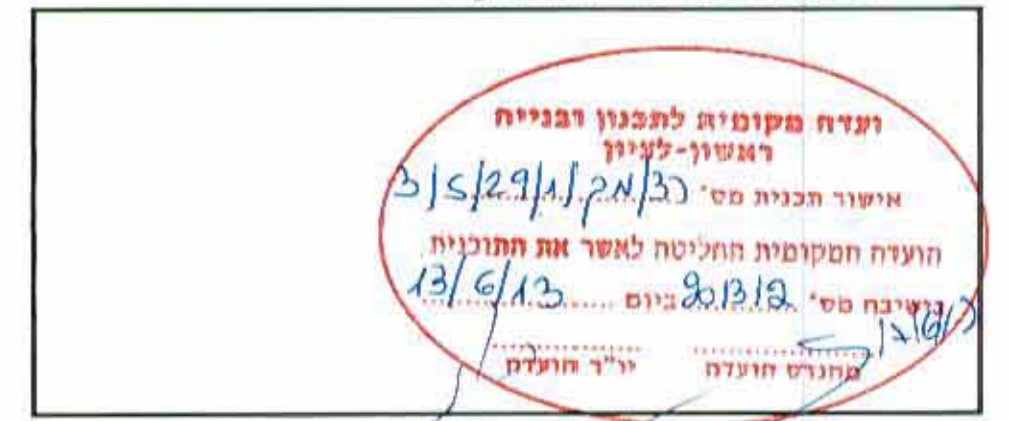 ועדה מקומית לתכנון ובנייה
ראשון-לציון
אישור תכנית מס' רצ/מק/3/5/29/1
הועדה המקומית החליטה לאשר את התוכנית
בישיבה מס' 20.13/2 ביום 13/6/13
מהנדס הועדה יו"ר הועדה